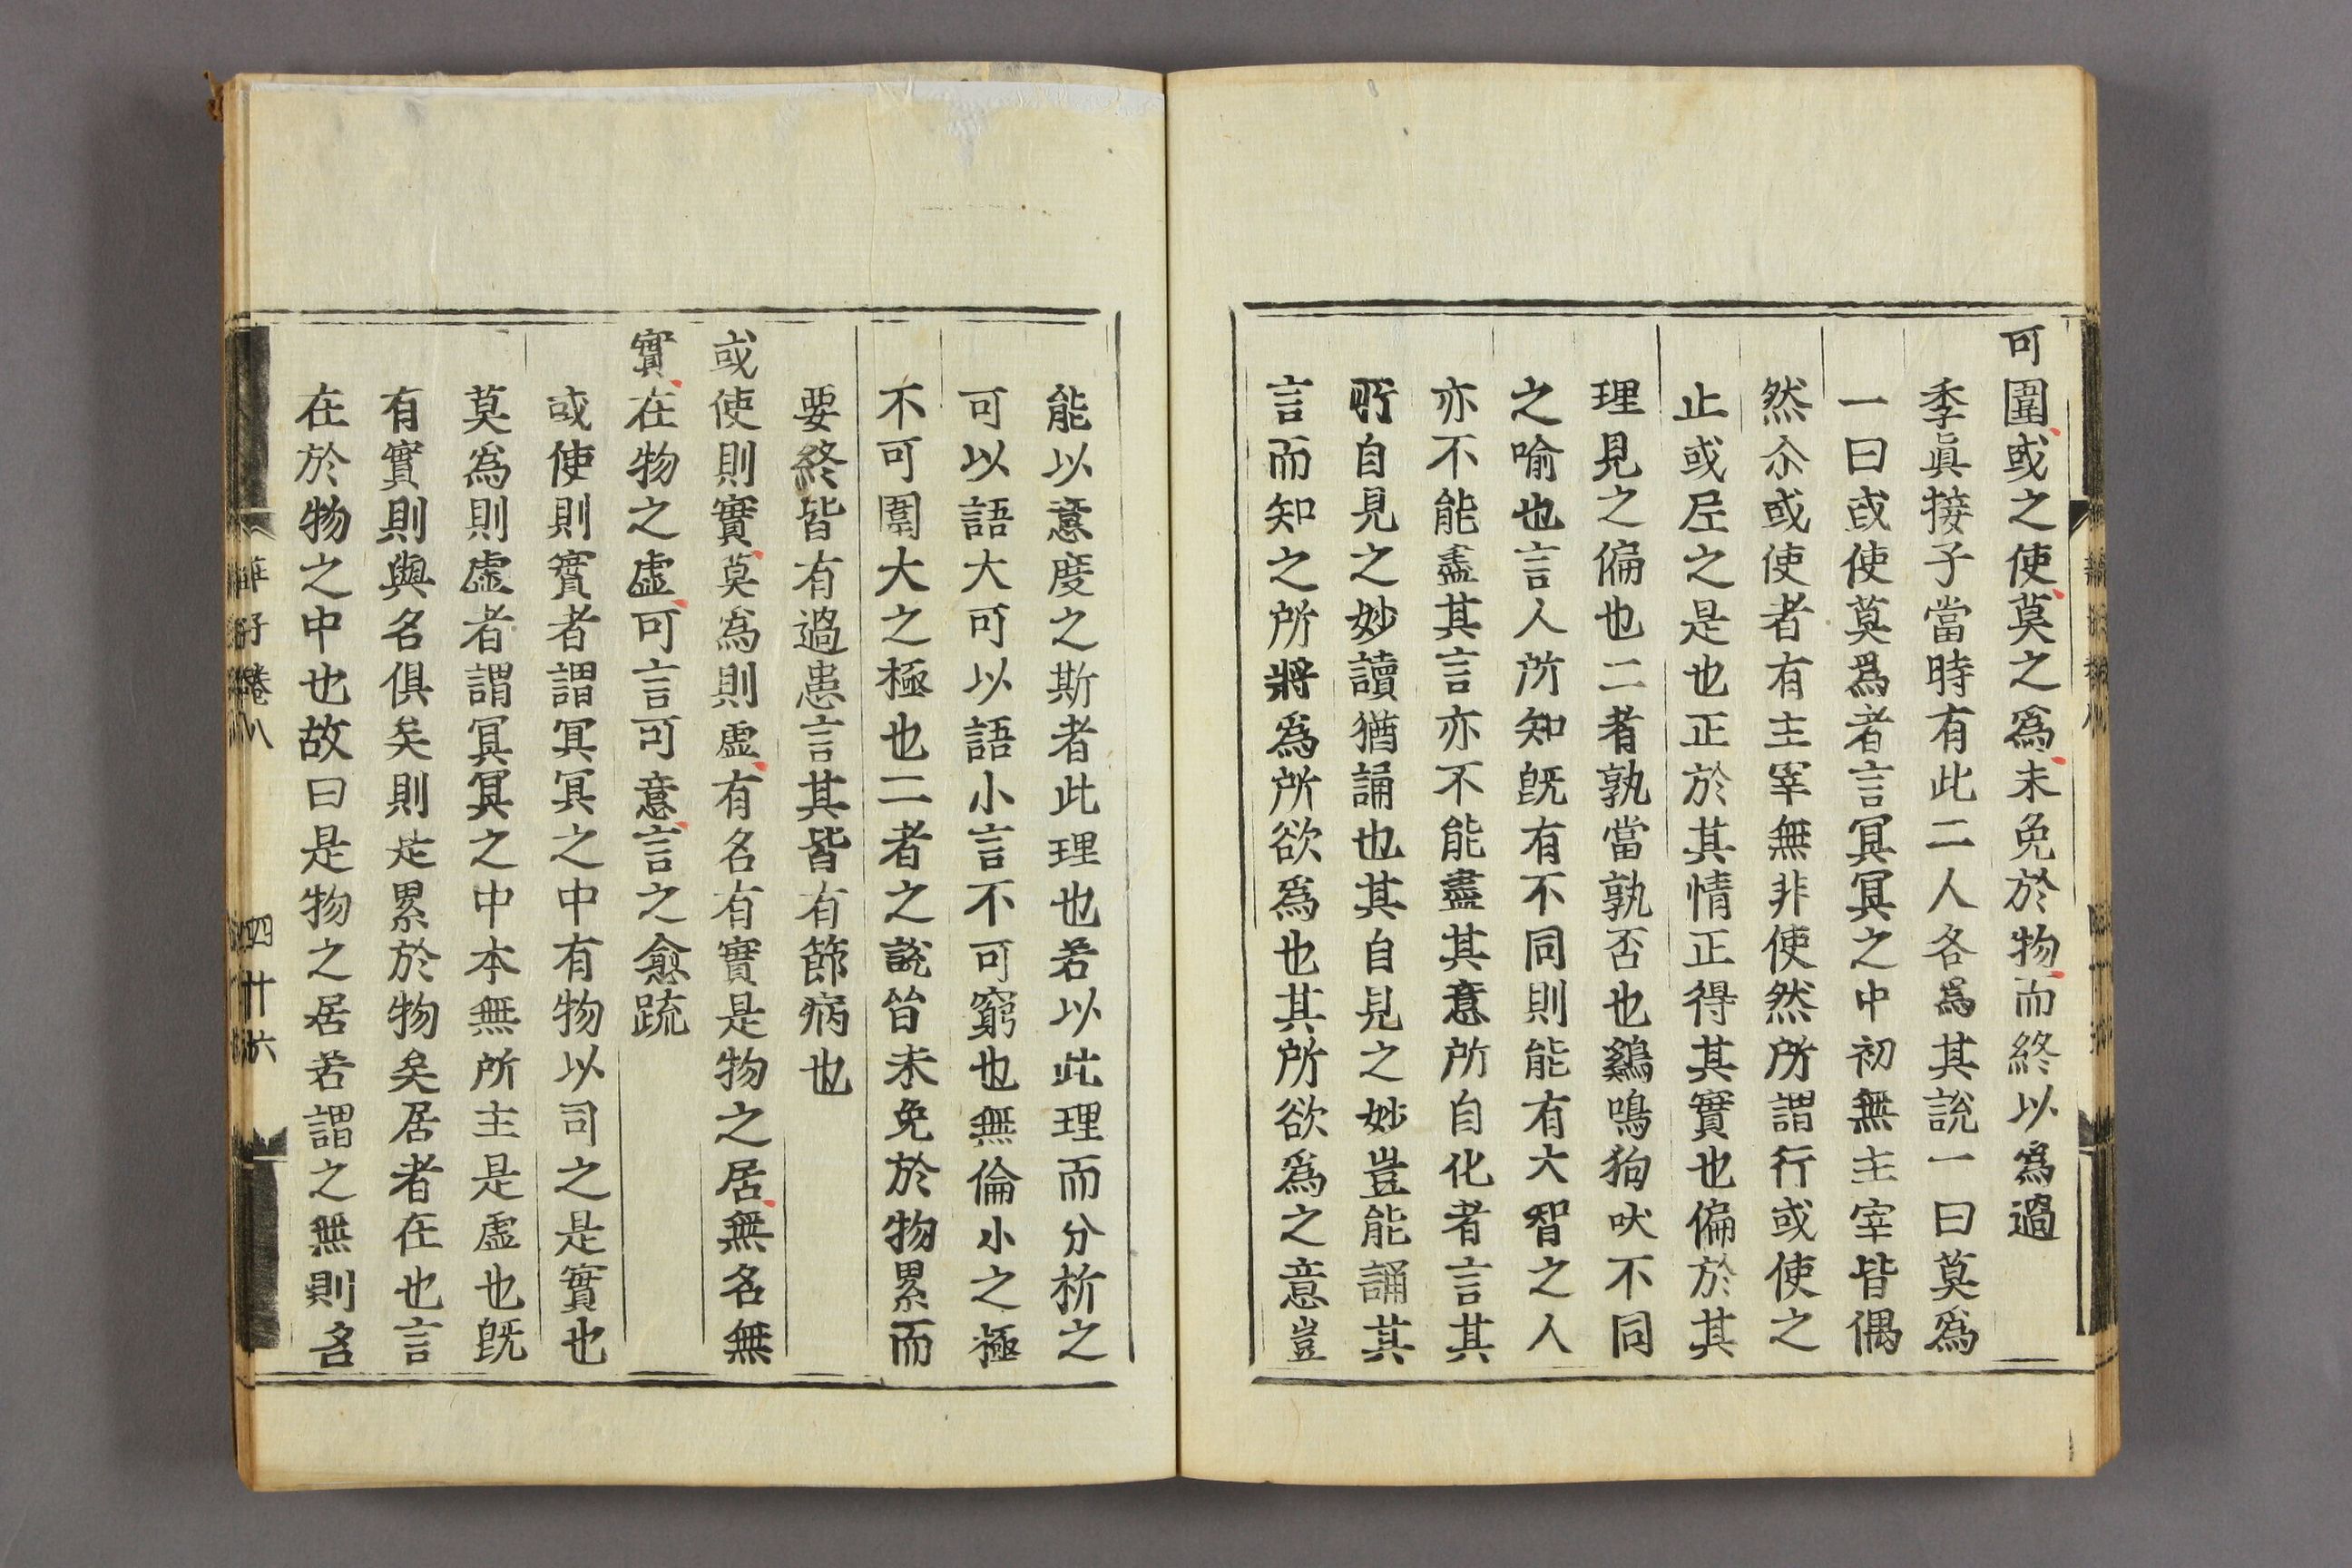 可圍或之使莫之爲未免於物而終以爲過
季眞接子當時有此二人各爲其說一曰莫爲
一曰或使莫爲者言冥冥之中初無主宰皆偶
然尒或使者有主宰無非使然所謂行或使之
止或尼之是也正於其情正得其實也偏於其
理見之偏也二者孰當孰否也鷄鳴狗吠不同
之喻也言人所知旣有不同則能有大智之人
亦不能盡其言亦不能盡其意所自化者言其
所自見之妙讀猶誦也其自見之妙豈能誦其
言而知之所將爲所欲爲也其所欲爲之意豈
能以意度之斯者此理也若以此理而分析之
可以語大可以語小言不可窮也無倫小之極
不可圍大之極也二者之說皆未免於物累而
要終皆有過患言其皆有節病也
或使則實莫為則虛有名有實是物之居無名無
實在物之虛可言可意言之愈疏
或使則實者謂冥冥之中有物以司之是實也
莫爲則虛者謂冥冥之中本無所主是虛也旣
有實則與名俱矣則是累於物矣居者在也言
在於物之中也故曰是物之居若謂之無則名
莊子卷八 四十六